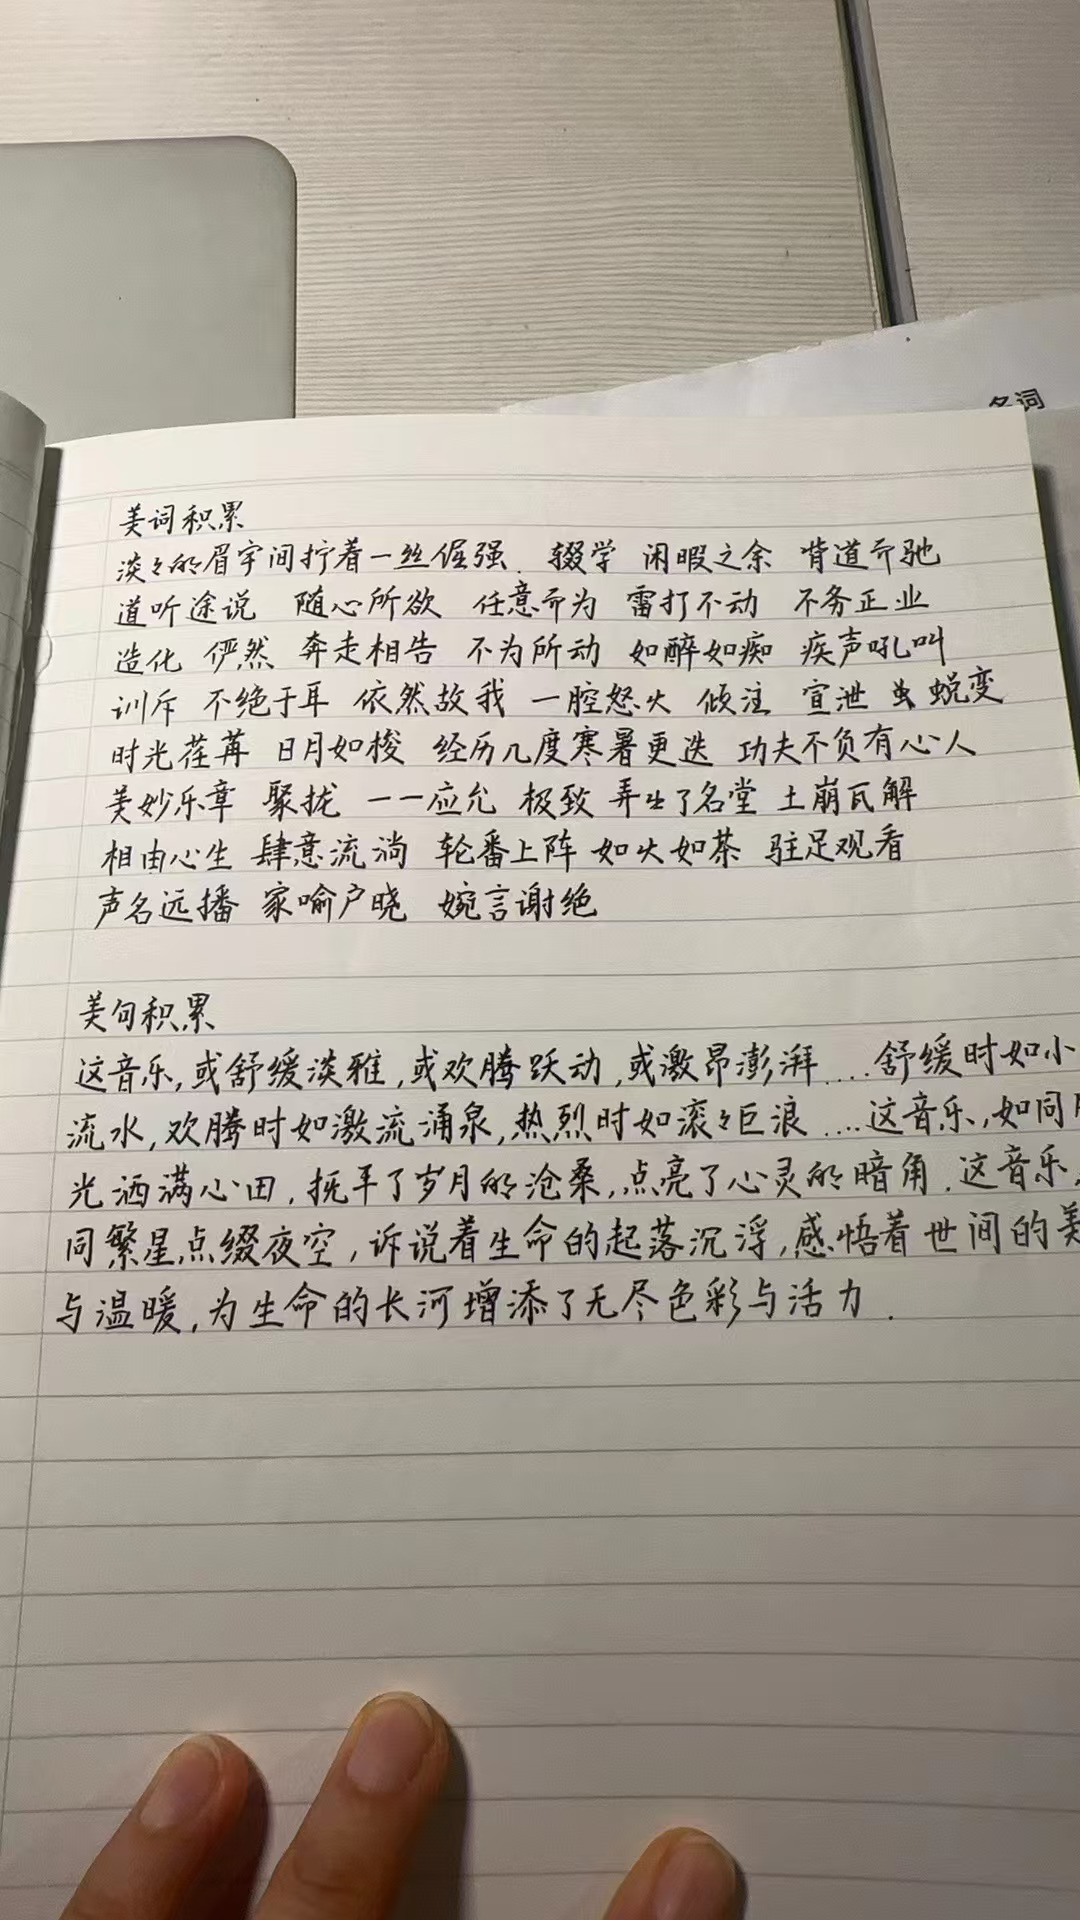 名词
美词积累
淡々的眉宇间拧着一丝倔强. 辍学 闲暇之余 背道而驰
道听途说 随心所欲 任意而为 雷打不动 不务正业
造化 俨然 奔走相告 不为所动 如醉如痴 疾声吼叫
训斥 不绝于耳 依然故我 一腔怒火 倾注 宣泄 虫 蜕变
时光荏苒 日月如梭 经历几度寒暑更迭 功夫不负有心人
美妙乐章 聚拢 一一应允 极致 弄出了名堂 土崩瓦解
相由心生 肆意流淌 轮番上阵 如火如荼 驻足观看
声名远播 家喻户晓 婉言谢绝
美句积累
这音乐,或舒缓淡雅,或欢腾跃动,或激昂澎湃....舒缓时如小
流水,欢腾时如激流涌泉,热烈时如滚々巨浪....这音乐,如同
光洒满心田,抚平了岁月的沧桑,点亮了心灵的暗角.这音乐,
同繁星点缀夜空,诉说着生命的起落沉浮,感悟着世间的美
与温暖,为生命的长河增添了无尽色彩与活力.